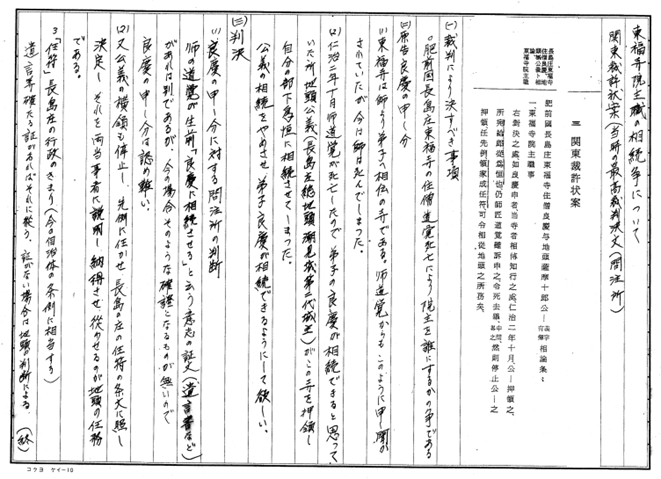 東福寺院主職の相続争について
関東裁許状案(当時の最高裁判決文(問注所)
三 関東裁許状案
長島庄東福寺
住僧良慶、地
頭公義と相
論す
東福寺院主職
肥前國長島庄東福寺住僧良慶与地頭薩摩十郎公—相論條々
一、東福寺院主職事
右對決之處如良慶申者当寺者相傳知行之處仁治二年十月公—押領之、
押領任先例領家成任符、可令相從地頭之所務矣、
(一)裁判により決すべき事項
○肥前国長島庄東福寺の住僧道覚死亡により院主を誰にするかの争である
(二)原告良慶の申し分
(1)東福寺は師より弟子へ相伝の寺である。師道覚からもこのように申し聞か
されていたが今は師は死んでしまった。
(2)仁治二年十月師道覚が死亡したので弟子の良慶が相続できると思って
いた所地頭公義(長島庄総地頭潮見城第二代城主)がこの寺を押領し
自分の部下為恒に相続させてしまった。
公義の相続をやめさせ弟子良慶が相続できるようにして欲しい。
(三)判決
(1)良慶の申し分に対する問注所の判断
師の道覚が生前「良慶に相続させる」と云う意志の証文(遺言書など)
があれば別であるが、今の場合そのような確證となるものが無いので
良慶の申し分は認め難い。
(2)又公義の横領も停止し、先例に任かせ長島の庄の任符の条文に照し
決定し、それを両当事者に説明し納得させ、従わせるのが地頭の任務
である。
3「任符」長島庄の行政のきまり(今の自治体の条例に相当する)
遺言等確たる証があればそれに従う、証がない場合は地頭の判断による。(終)
コクヨ ケイ-10